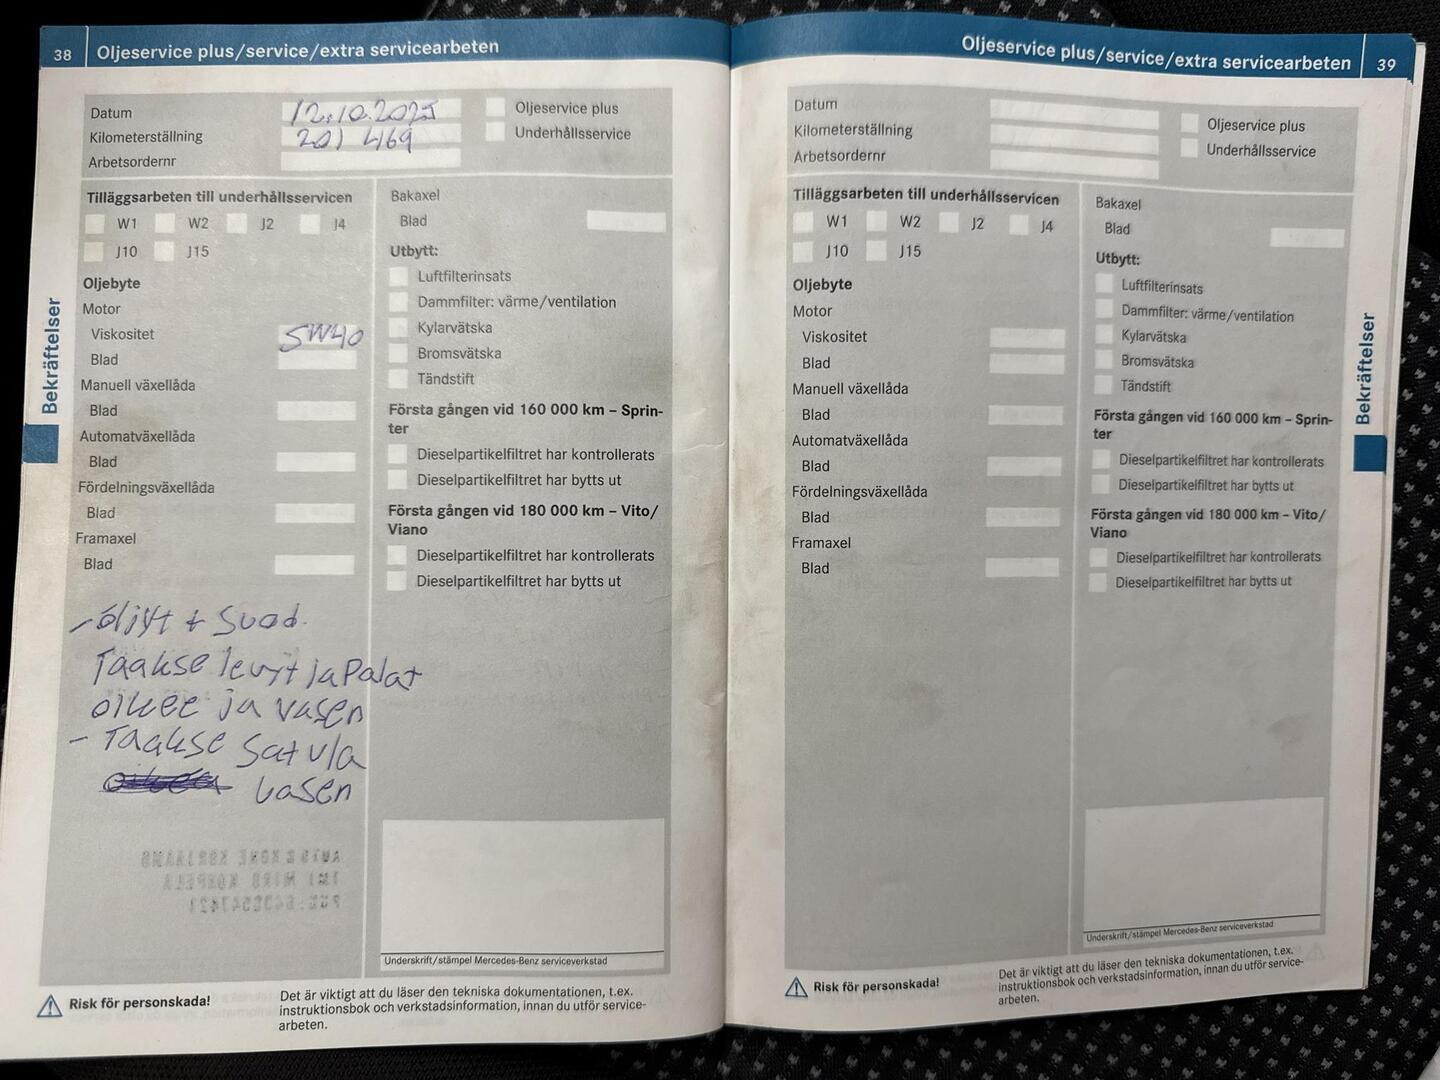 38 Oljeservice plus/service/extra servicearbeten
Datum 12.10.2025
Kilometerställning 201 469
Arbetsordernr
Oljeservice plus
Underhållsservice
Tilläggsarbeten till underhållsservicen
W1 W2 J2 J4
J10 J15
Oljebyte
Motor
Viskositet 5W40
Blad
Manuell växellåda
Blad
Automatväxellåda
Blad
Fördelningsväxellåda
Blad
Framaxel
Blad
- öljyt + Suod.
Taakse levyt ja Palat
oikee ja vasen
- Taakse satula
vasen
Bakaxel
Blad
Utbytt:
Luftfilterinsats
Dammfilter: värme/ventilation
Kylarvätska
Bromsvätska
Tändstift
Första gången vid 160 000 km – Sprin-
ter
Dieselpartikelfiltret har kontrollerats
Dieselpartikelfiltret har bytts ut
Första gången vid 180 000 km – Vito/
Viano
Dieselpartikelfiltret har kontrollerats
Dieselpartikelfiltret har bytts ut
Underskrift/stämpel Mercedes-Benz serviceverkstad
Risk för personskada!
Det är viktigt att du läser den tekniska dokumentationen, t.ex.
instruktionsbok och verkstadsinformation, innan du utför service-
arbeten.
Bekräftelser
Oljeservice plus/service/extra servicearbeten 39
Datum
Kilometerställning
Arbetsordernr
Oljeservice plus
Underhållsservice
Tilläggsarbeten till underhållsservicen
W1 W2 J2 J4
J10 J15
Oljebyte
Motor
Viskositet
Blad
Manuell växellåda
Blad
Automatväxellåda
Blad
Fördelningsväxellåda
Blad
Framaxel
Blad
Bakaxel
Blad
Utbytt:
Luftfilterinsats
Dammfilter: värme/ventilation
Kylarvätska
Bromsvätska
Tändstift
Första gången vid 160 000 km – Sprin-
ter
Dieselpartikelfiltret har kontrollerats
Dieselpartikelfiltret har bytts ut
Första gången vid 180 000 km – Vito/
Viano
Dieselpartikelfiltret har kontrollerats
Dieselpartikelfiltret har bytts ut
Underskrift/stämpel Mercedes-Benz serviceverkstad
Risk för personskada!
Det är viktigt att du läser den tekniska dokumentationen, t.ex.
instruktionsbok och verkstadsinformation, innan du utför service-
arbeten.
Bekräftelser